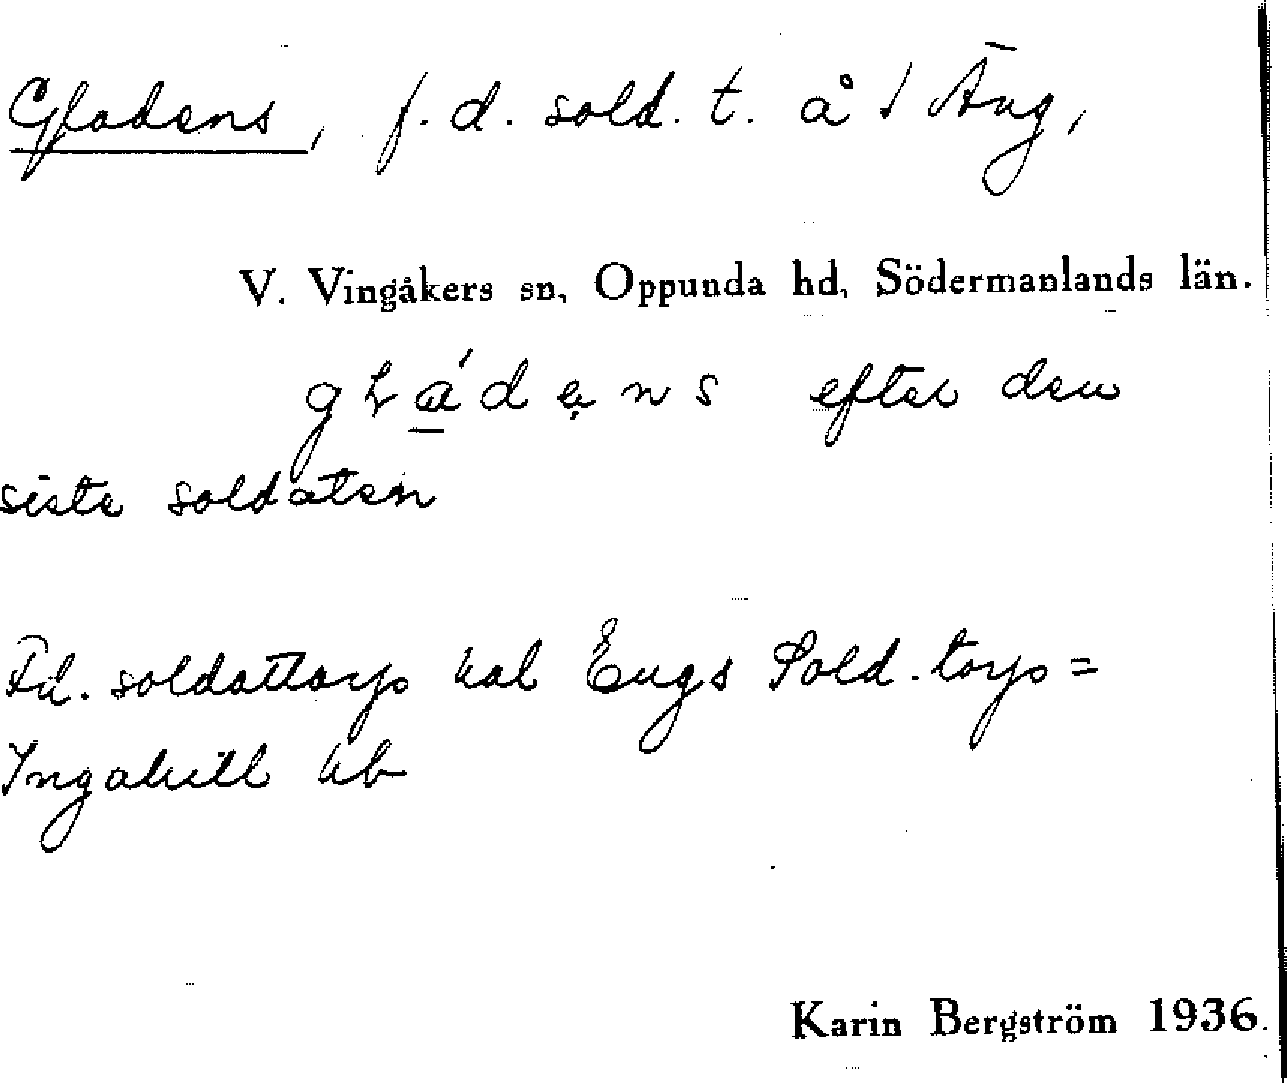 Gladens, f.d. sold. t. å 1 Äng,
V. Vingåkers sn, Oppunda hd, Södermanlands län.
gládẹns efter den
siste soldaten
F.d. soldattorp kal Engs Sold.torp=
Ingakull kb
Karin Bergström 1936.